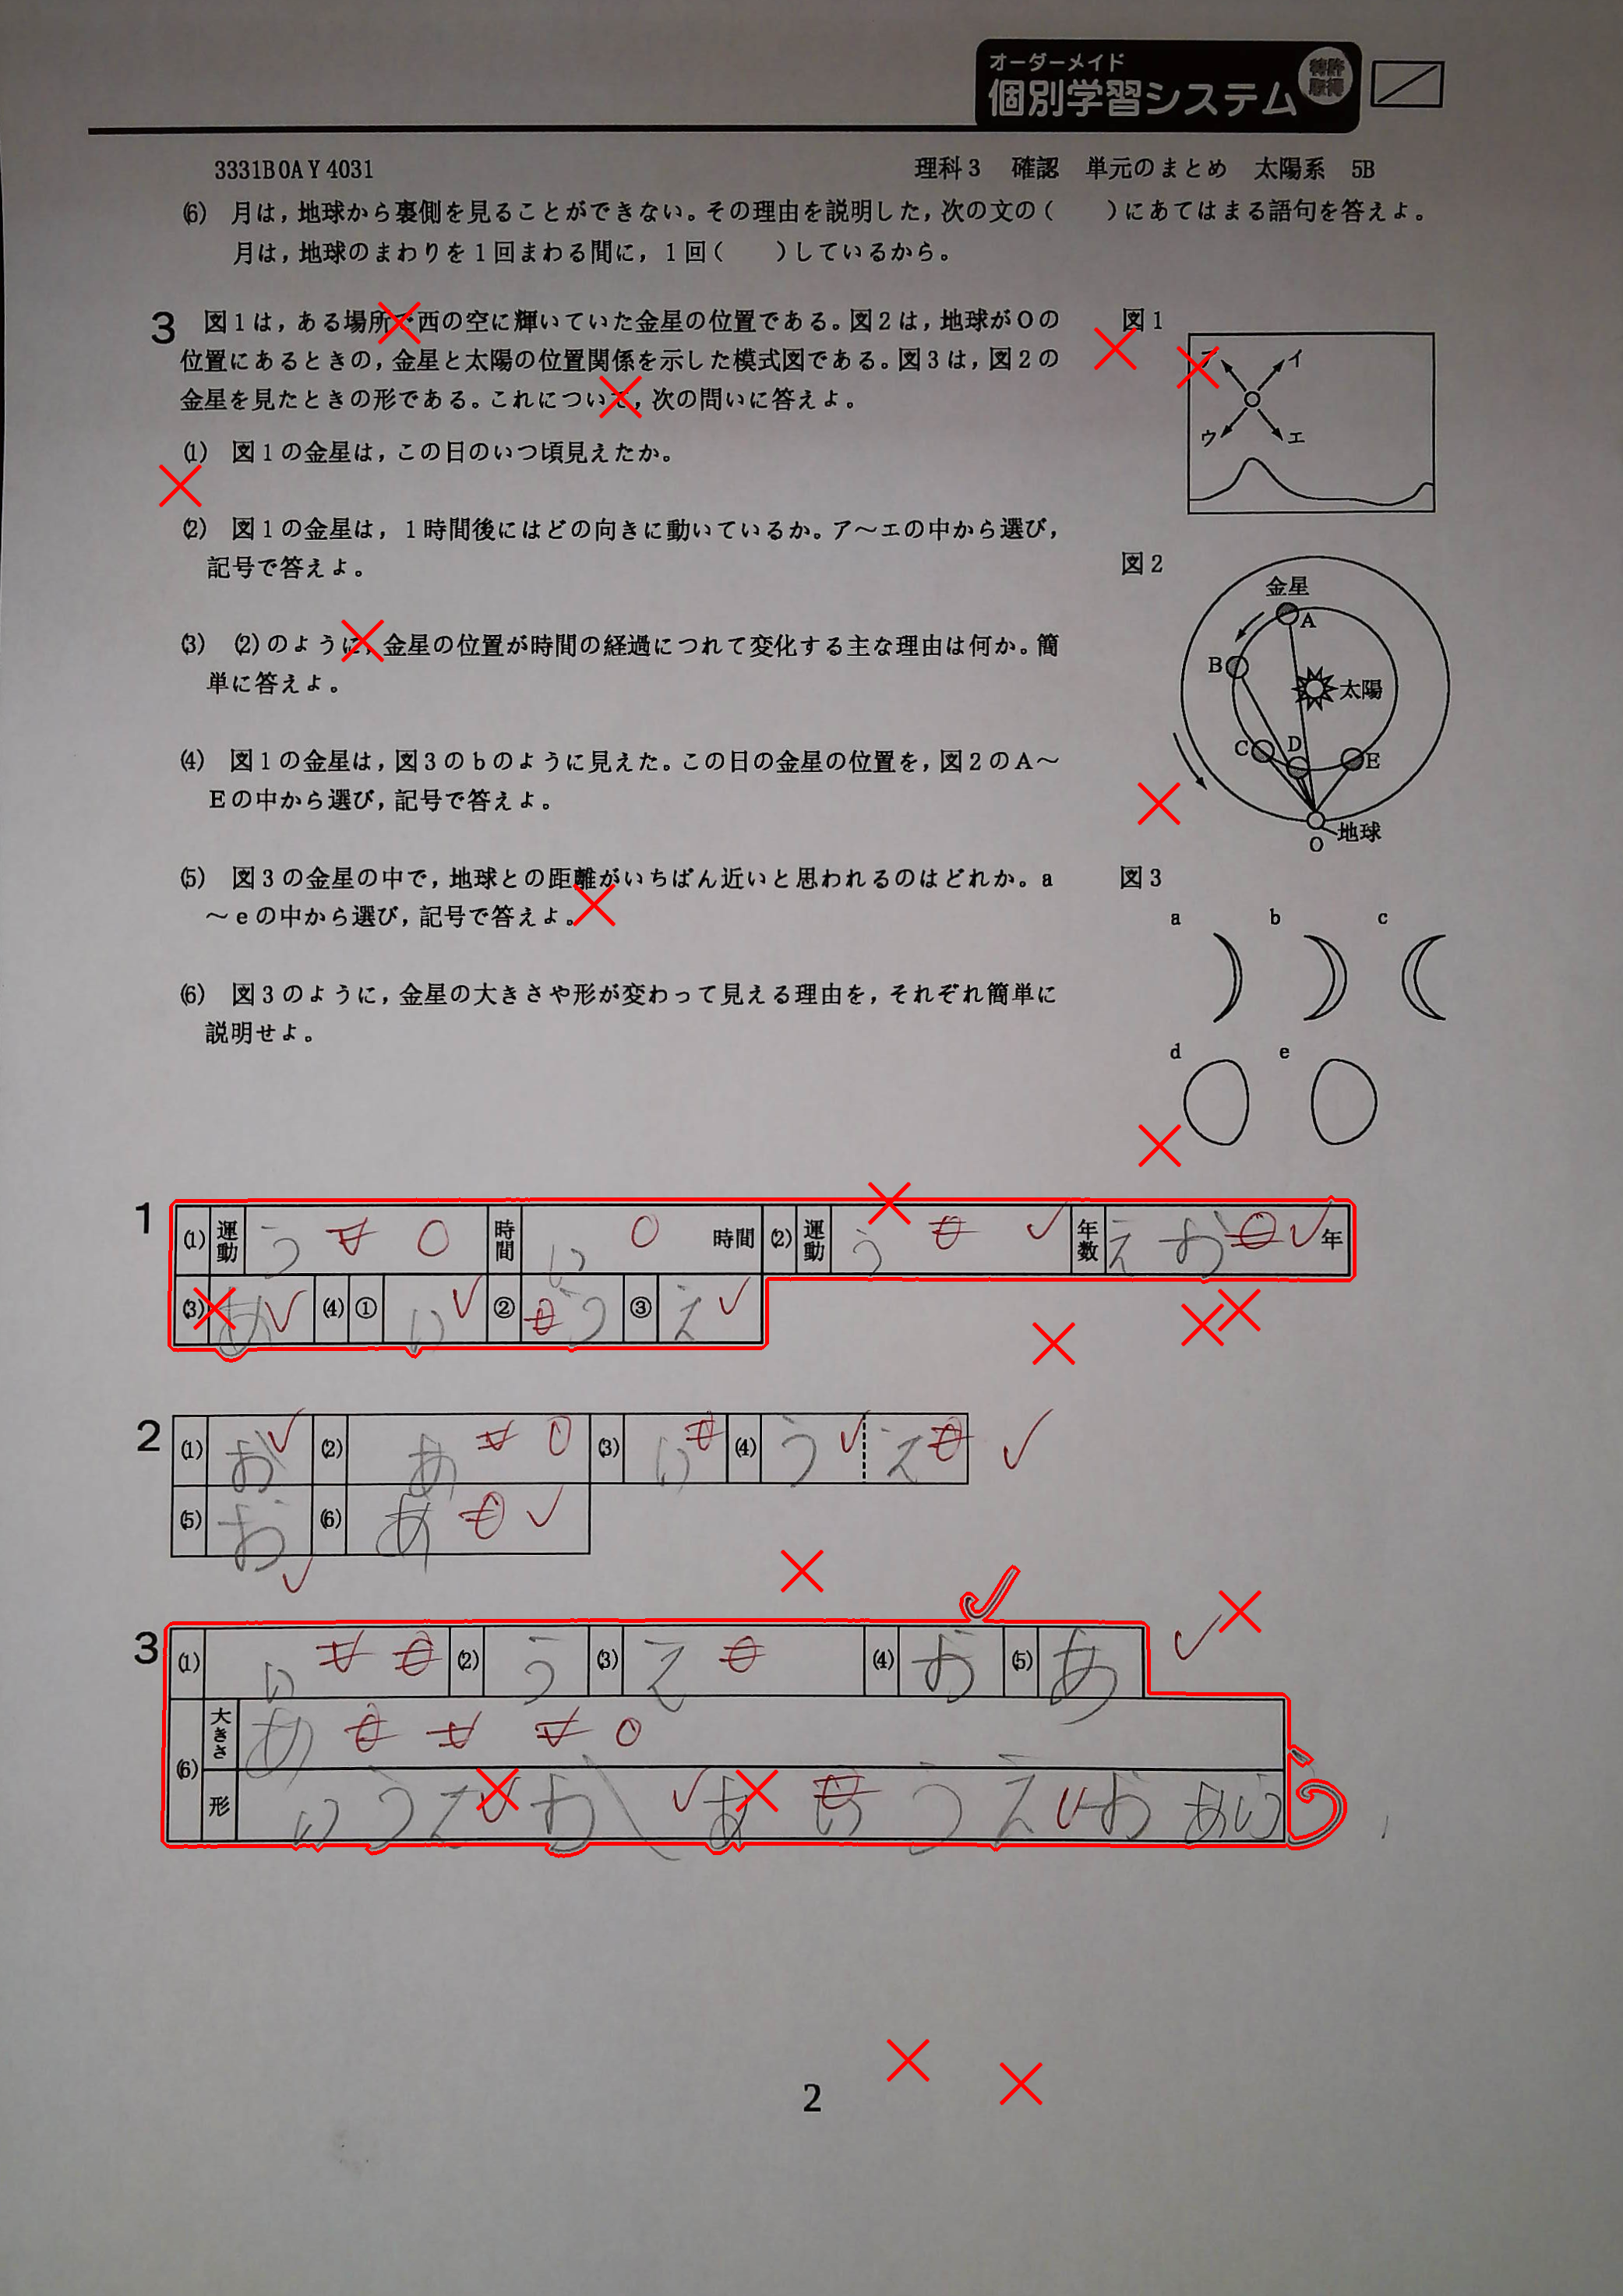 オーダーメイド
個別学習システム
特許取得
3331B0AY4031
理科3 確認 単元のまとめ 太陽系 5B
(6) 月は,地球から裏側を見ることができない。その理由を説明した,次の文の( )にあてはまる語句を答えよ。
月は,地球のまわりを1回まわる間に,1回( )しているから。
3 図1は,ある場所で西の空に輝いていた金星の位置である。図2は,地球がOの
位置にあるときの,金星と太陽の位置関係を示した模式図である。図3は,図2の
金星を見たときの形である。これについて,次の問いに答えよ。
(1) 図1の金星は,この日のいつ頃見えたか。
(2) 図1の金星は,1時間後にはどの向きに動いているか。ア~エの中から選び,
記号で答えよ。
(3) (2)のように,金星の位置が時間の経過につれて変化する主な理由は何か。簡
単に答えよ。
(4) 図1の金星は,図3のbのように見えた。この日の金星の位置を,図2のA~
Eの中から選び,記号で答えよ。
(5) 図3の金星の中で,地球との距離がいちばん近いと思われるのはどれか。a
~eの中から選び,記号で答えよ。
(6) 図3のように,金星の大きさや形が変わって見える理由を,それぞれ簡単に
説明せよ。
図1
ア イ
ウ エ
図2
金星
A
B
太陽
C D E
地球
O
図3
a b c
d e
1
(1) 運動 う 時間 い 時間 (2) 運動 う 年数 え お 年
(3) あ (4) ① い ② う ③ え
2
(1) お (2) あ (3) い (4) う え
(5) お (6) あ
3
(1) い (2) う (3) え (4) お (5) あ
(6) 大きさ あ
形 い う え お あ い う え お あ い う
2